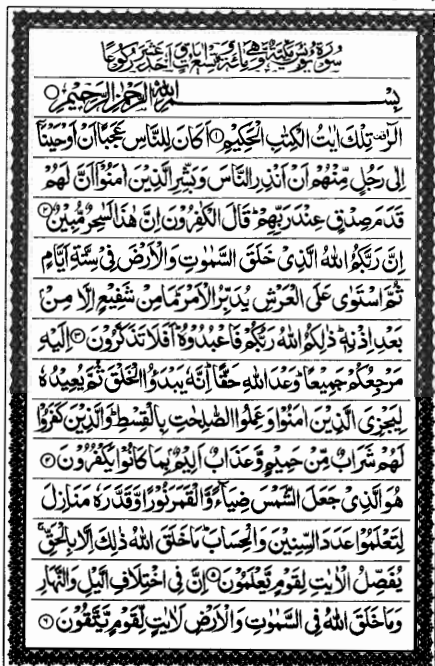 سُوْرَةُ يُوْنُسَ مَكِّيَّةٌ وَّهِيَ مِائَةٌ وَّتِسْعُ اٰيَاتٍ وَّاَحَدَ عَشَرَ رُكُوْعًا
بِسْمِ اللهِ الرَّحْمٰنِ الرَّحِيْمِ
الٓرٰ تِلْكَ اٰيٰتُ الْكِتٰبِ الْحَكِيْمِ ۝۱ اَكَانَ لِلنَّاسِ عَجَبًا اَنْ اَوْحَيْنَآ
اِلٰى رَجُلٍ مِّنْهُمْ اَنْ اَنْذِرِ النَّاسَ وَبَشِّرِ الَّذِيْنَ اٰمَنُوْٓا اَنَّ لَهُمْ
قَدَمَ صِدْقٍ عِنْدَ رَبِّهِمْ ؔ قَالَ الْكٰفِرُوْنَ اِنَّ هٰذَا لَسٰحِرٌ مُّبِيْنٌ ۝۲
اِنَّ رَبَّكُمُ اللهُ الَّذِيْ خَلَقَ السَّمٰوٰتِ وَالْاَرْضَ فِيْ سِتَّةِ اَيَّامٍ
ثُمَّ اسْتَوٰى عَلَى الْعَرْشِ يُدَبِّرُ الْاَمْرَ ؕ مَا مِنْ شَفِيْعٍ اِلَّا مِنْۢ
بَعْدِ اِذْنِهٖ ؕ ذٰلِكُمُ اللهُ رَبُّكُمْ فَاعْبُدُوْهُ ؕ اَفَلَا تَذَكَّرُوْنَ ۝۳ اِلَيْهِ
مَرْجِعُكُمْ جَمِيْعًا ؕ وَعْدَ اللهِ حَقًّا ؕ اِنَّهٗ يَبْدَؤُا الْخَلْقَ ثُمَّ يُعِيْدُهٗ
لِيَجْزِيَ الَّذِيْنَ اٰمَنُوْا وَعَمِلُوا الصّٰلِحٰتِ بِالْقِسْطِ ؕ وَالَّذِيْنَ كَفَرُوْا
لَهُمْ شَرَابٌ مِّنْ حَمِيْمٍ وَّعَذَابٌ اَلِيْمٌۢ بِمَا كَانُوْا يَكْفُرُوْنَ ۝۴
هُوَ الَّذِيْ جَعَلَ الشَّمْسَ ضِيَآءً وَّالْقَمَرَ نُوْرًا وَّقَدَّرَهٗ مَنَازِلَ
لِتَعْلَمُوْا عَدَدَ السِّنِيْنَ وَالْحِسَابَ ؕ مَا خَلَقَ اللهُ ذٰلِكَ اِلَّا بِالْحَقِّ ۚ
يُفَصِّلُ الْاٰيٰتِ لِقَوْمٍ يَّعْلَمُوْنَ ۝۵ اِنَّ فِي اخْتِلَافِ الَّيْلِ وَالنَّهَارِ
وَمَا خَلَقَ اللهُ فِي السَّمٰوٰتِ وَالْاَرْضِ لَاٰيٰتٍ لِّقَوْمٍ يَّتَّقُوْنَ ۝۶